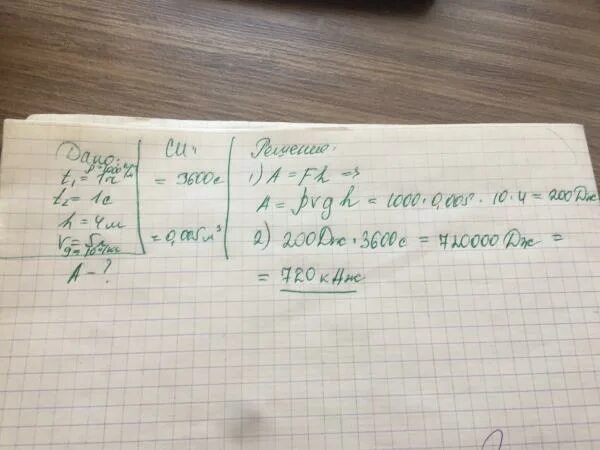 Дано:
ρ=1000
t₁ = 1ч
t₂ = 1с
h = 4м
V = 5л
g =
А - ?
СИ:
= 3600с
= 0,005м³
Решение:
1) А = Fh =>
А = ρvgh = 1000 · 0,005 · 10 · 4 = 200Дж
2) 200Дж · 3600с = 720000Дж =
= 720кДж